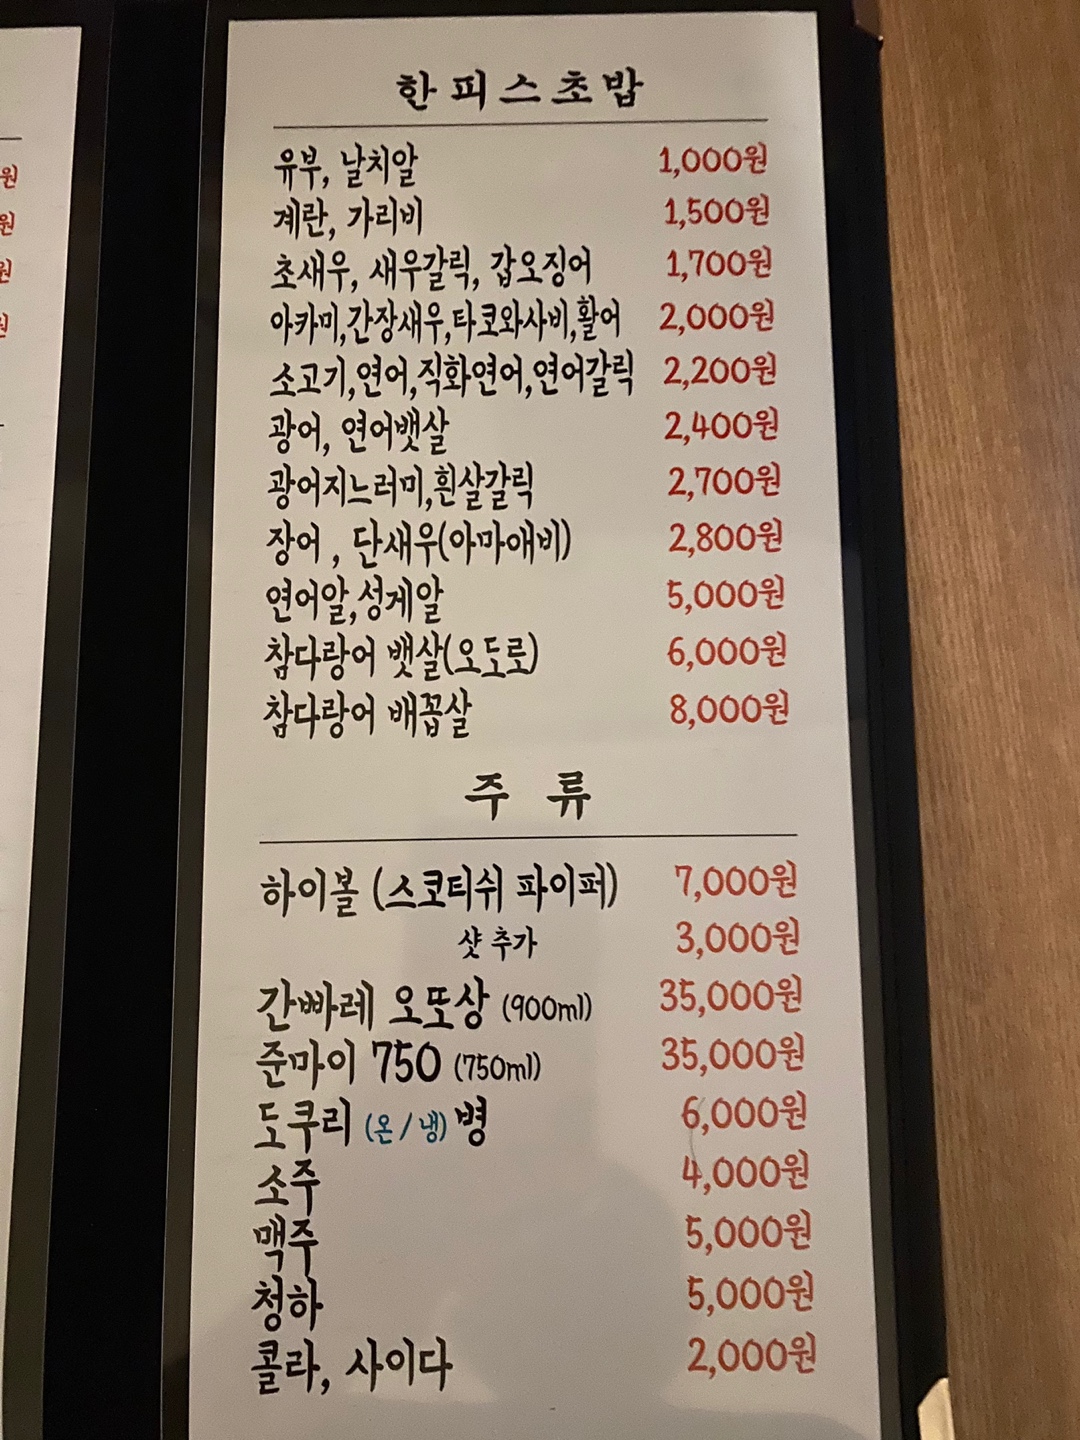 원
원
원
원
한피스초밥
유부, 날치알 1,000원
계란, 가리비 1,500원
초새우, 새우갈릭, 갑오징어 1,700원
아카미,간장새우,타코와사비,활어 2,000원
소고기,연어,직화연어,연어갈릭 2,200원
광어, 연어뱃살 2,400원
광어지느러미,흰살갈릭 2,700원
장어, 단새우(아마애비) 2,800원
연어알,성게알 5,000원
참다랑어 뱃살(오도로) 6,000원
참다랑어 배꼽살 8,000원
주 류
하이볼 (스코티쉬 파이퍼) 7,000원
샷 추가 3,000원
간빠레 오또상 (900ml) 35,000원
준마이 750 (750ml) 35,000원
도쿠리 (온/냉) 병 6,000원
소주 4,000원
맥주 5,000원
청하 5,000원
콜라, 사이다 2,000원